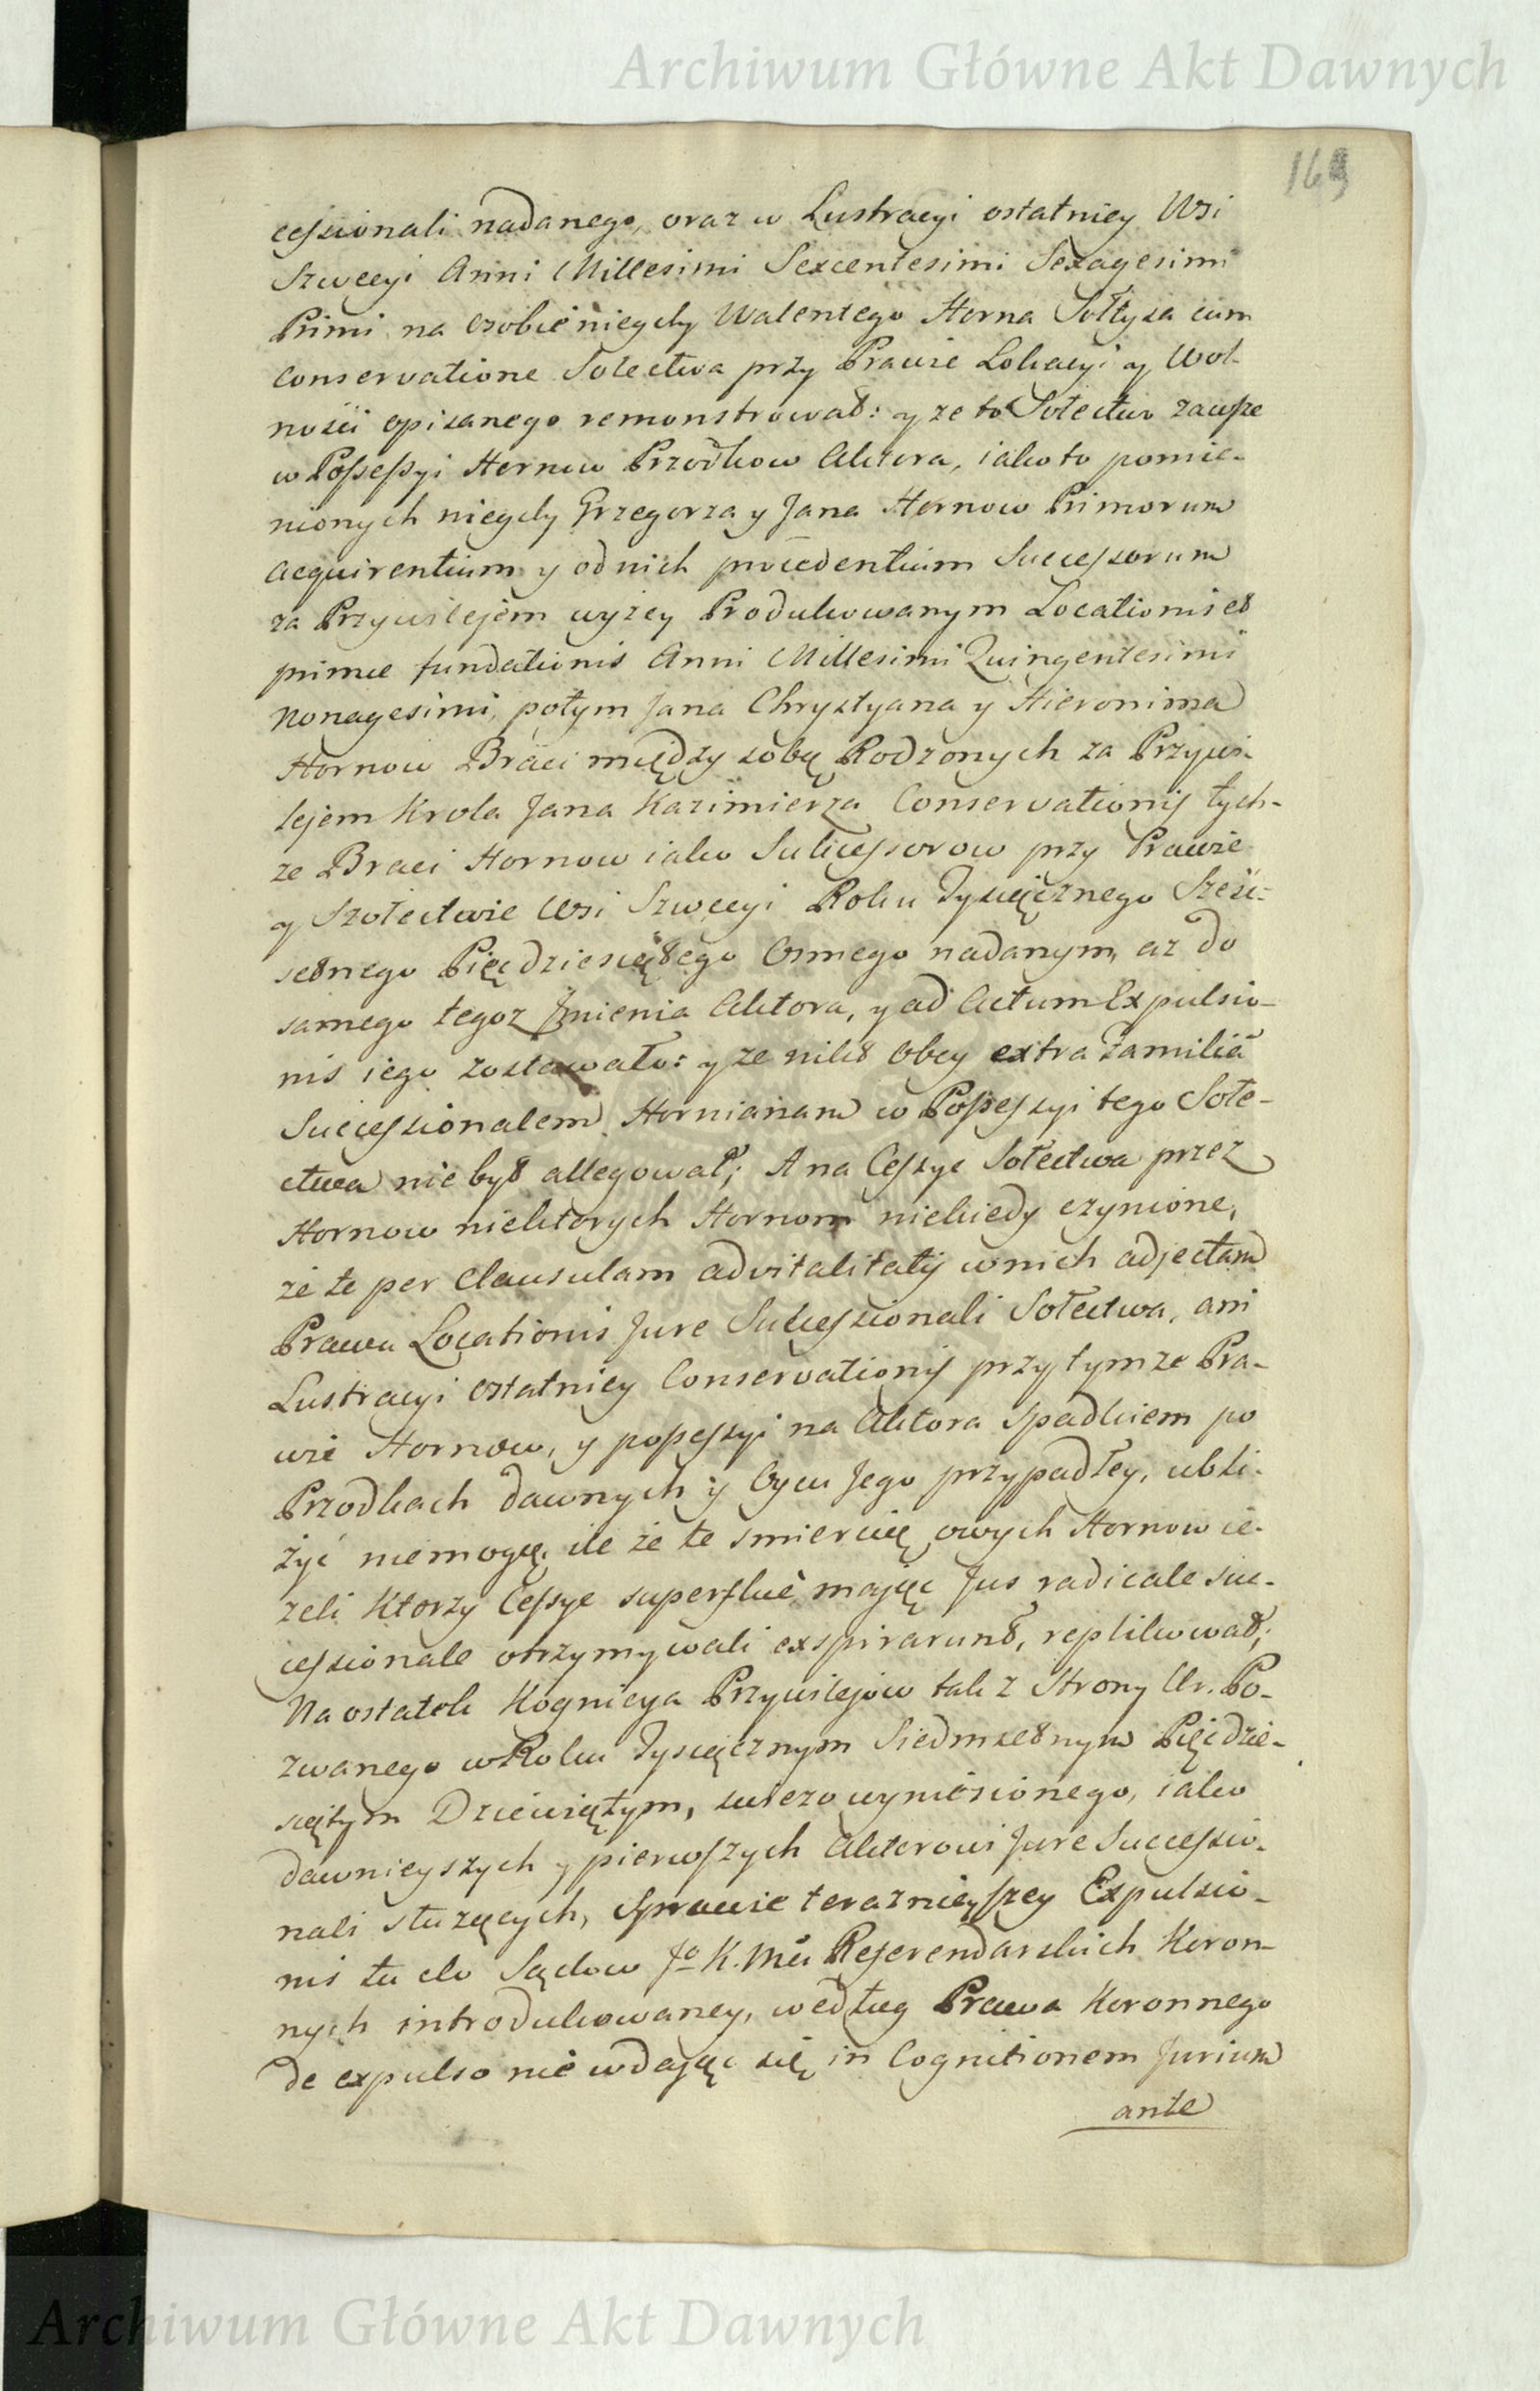 Archiwum Główne Akt Dawnych
169
cessionali nadanego, oraz w Lustracyi ostatniey Wsi
Szwecyi Anni Millesimi Sexcentesimi Sexagesimi
Primi na osobie niegdy Walentego Horna Sołtysa cum
conservatione Sołectwa przy Prawie Lokacyi y Wol-
nosci opisanego remonstrował: y ze to Sołectwo zawsze
w Possessyi Hornow Przodkow Aktora, iako to pomie-
nionych niegdy Grzegorza y Jana Hornow Primorum
acquirentium y od nich procedentium Successorum
za Przywilejem wyzey Produkowanym Locationis et
primae fundationis Anni Millesimi Quingentesimi
Nonagesimi, potym Jana Chrystyana y Hieronima
Hornow Braci między sobą Rodzonych za Przywi-
lejem Krola Jana Kazimierza Conservationis tych-
ze Braci Hornow iako Sukcessorow przy Prawie
y Szołectwie Wsi Szwecyi Roku Tysiącznego Sześć-
setnego Pięcdziesiątego Osmego nadanym, az do
samego tegoz Imienia Aktora, y ad Actum Expulsio-
nis iego zostawało: y ze nikt obcy extra Familiã
Successionalem Hornianam w Possessyi tego Sołe-
ctwa nie był allegował; A na Cessye Sołectwa przez
Hornow niektorych Hornom niekiedy czynione,
że te per Clausulam advitalitatis w nich adjectam
Prawu Locationis Jure Sukcessionali Sołectwa, ani
Lustracyi ostatniey Conservationis przy tymze Pra-
wie Hornow, y possessyi na Aktora Spadkiem po
Przodkach dawnych y Oycu Jego przypadłey, ubli-
żyć niemogą, ile że te smiercią owych Hornow ie-
zeli Ktorzy Cessye superflue mając Jus radicale suc-
cessionale otrzymywali exspirarunt, replikował;
Na ostatek Kognicya Przywilejow tak z Strony Ur. Po-
zwanego w Roku Tysiącznym Siedmsetnym Pięcdzie-
siątym Dziewiątym, swiezo wyniesionego, iako
dawnieyszych y pierwszych Aktorowi Jure Successio-
nali słuzących, Sprawie teraznieyszey Expulsio-
nis tu do Sądow Jo K. Mci Referendarskich Koron-
nych introdukowaney, według Prawa Koronnego
de expulso nie wdając się in Cognitionem Jurium
ante
Archiwum Główne Akt Dawnych